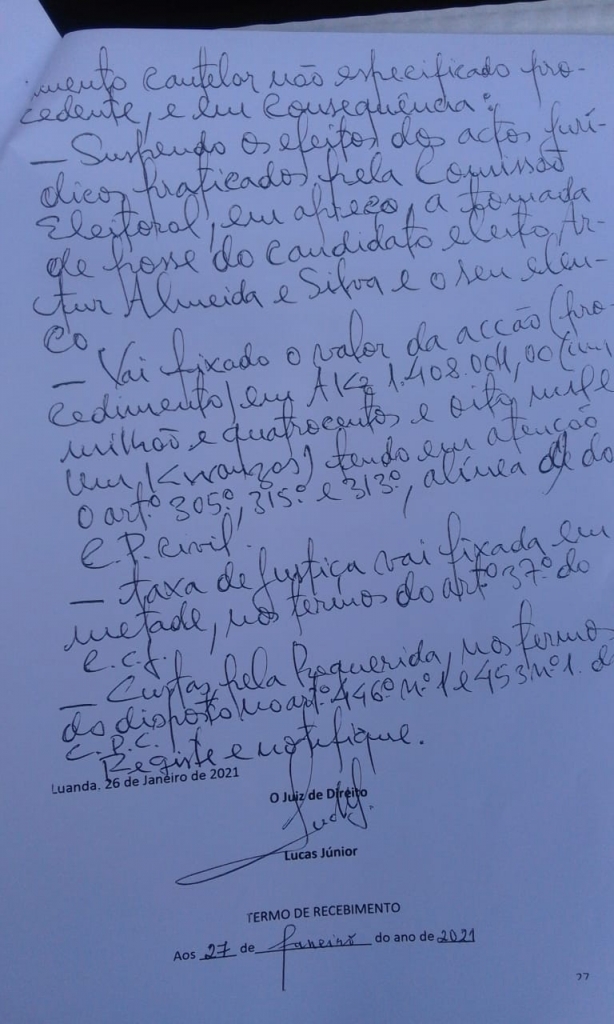 mento cautelar não especificado pro-
cedente, e em consequência:
— Suspendo os efeitos dos actos jurí-
dicos praticados pela Comissão
Eleitoral, em apreço, a tomada
de posse do candidato eleito Ar-
tur Almeida e Silva e o seu elen-
co.
— Vai fixado o valor da acção (pro-
cedimento) em AKz 1.408.001,00 (um
milhão e quatrocentos e oito mil e
um Kwanzas) tendo em atenção
o artº 305º, 315º e 313º, alínea do
C.P. Civil.
— taxa de Justiça vai fixada em
metade, nos termos do artº 37º do
C.C.J.
— Custas pela Requerida, nos termos
do disposto no artº 446º nº 1 e 453 nº 1. do
C.P.C.
Registe e notifique.
Luanda. 26 de Janeiro de 2021
O Juiz de Direito
Lucas Júnior
TERMO DE RECEBIMENTO
Aos 27 de Janeiro do ano de 2021